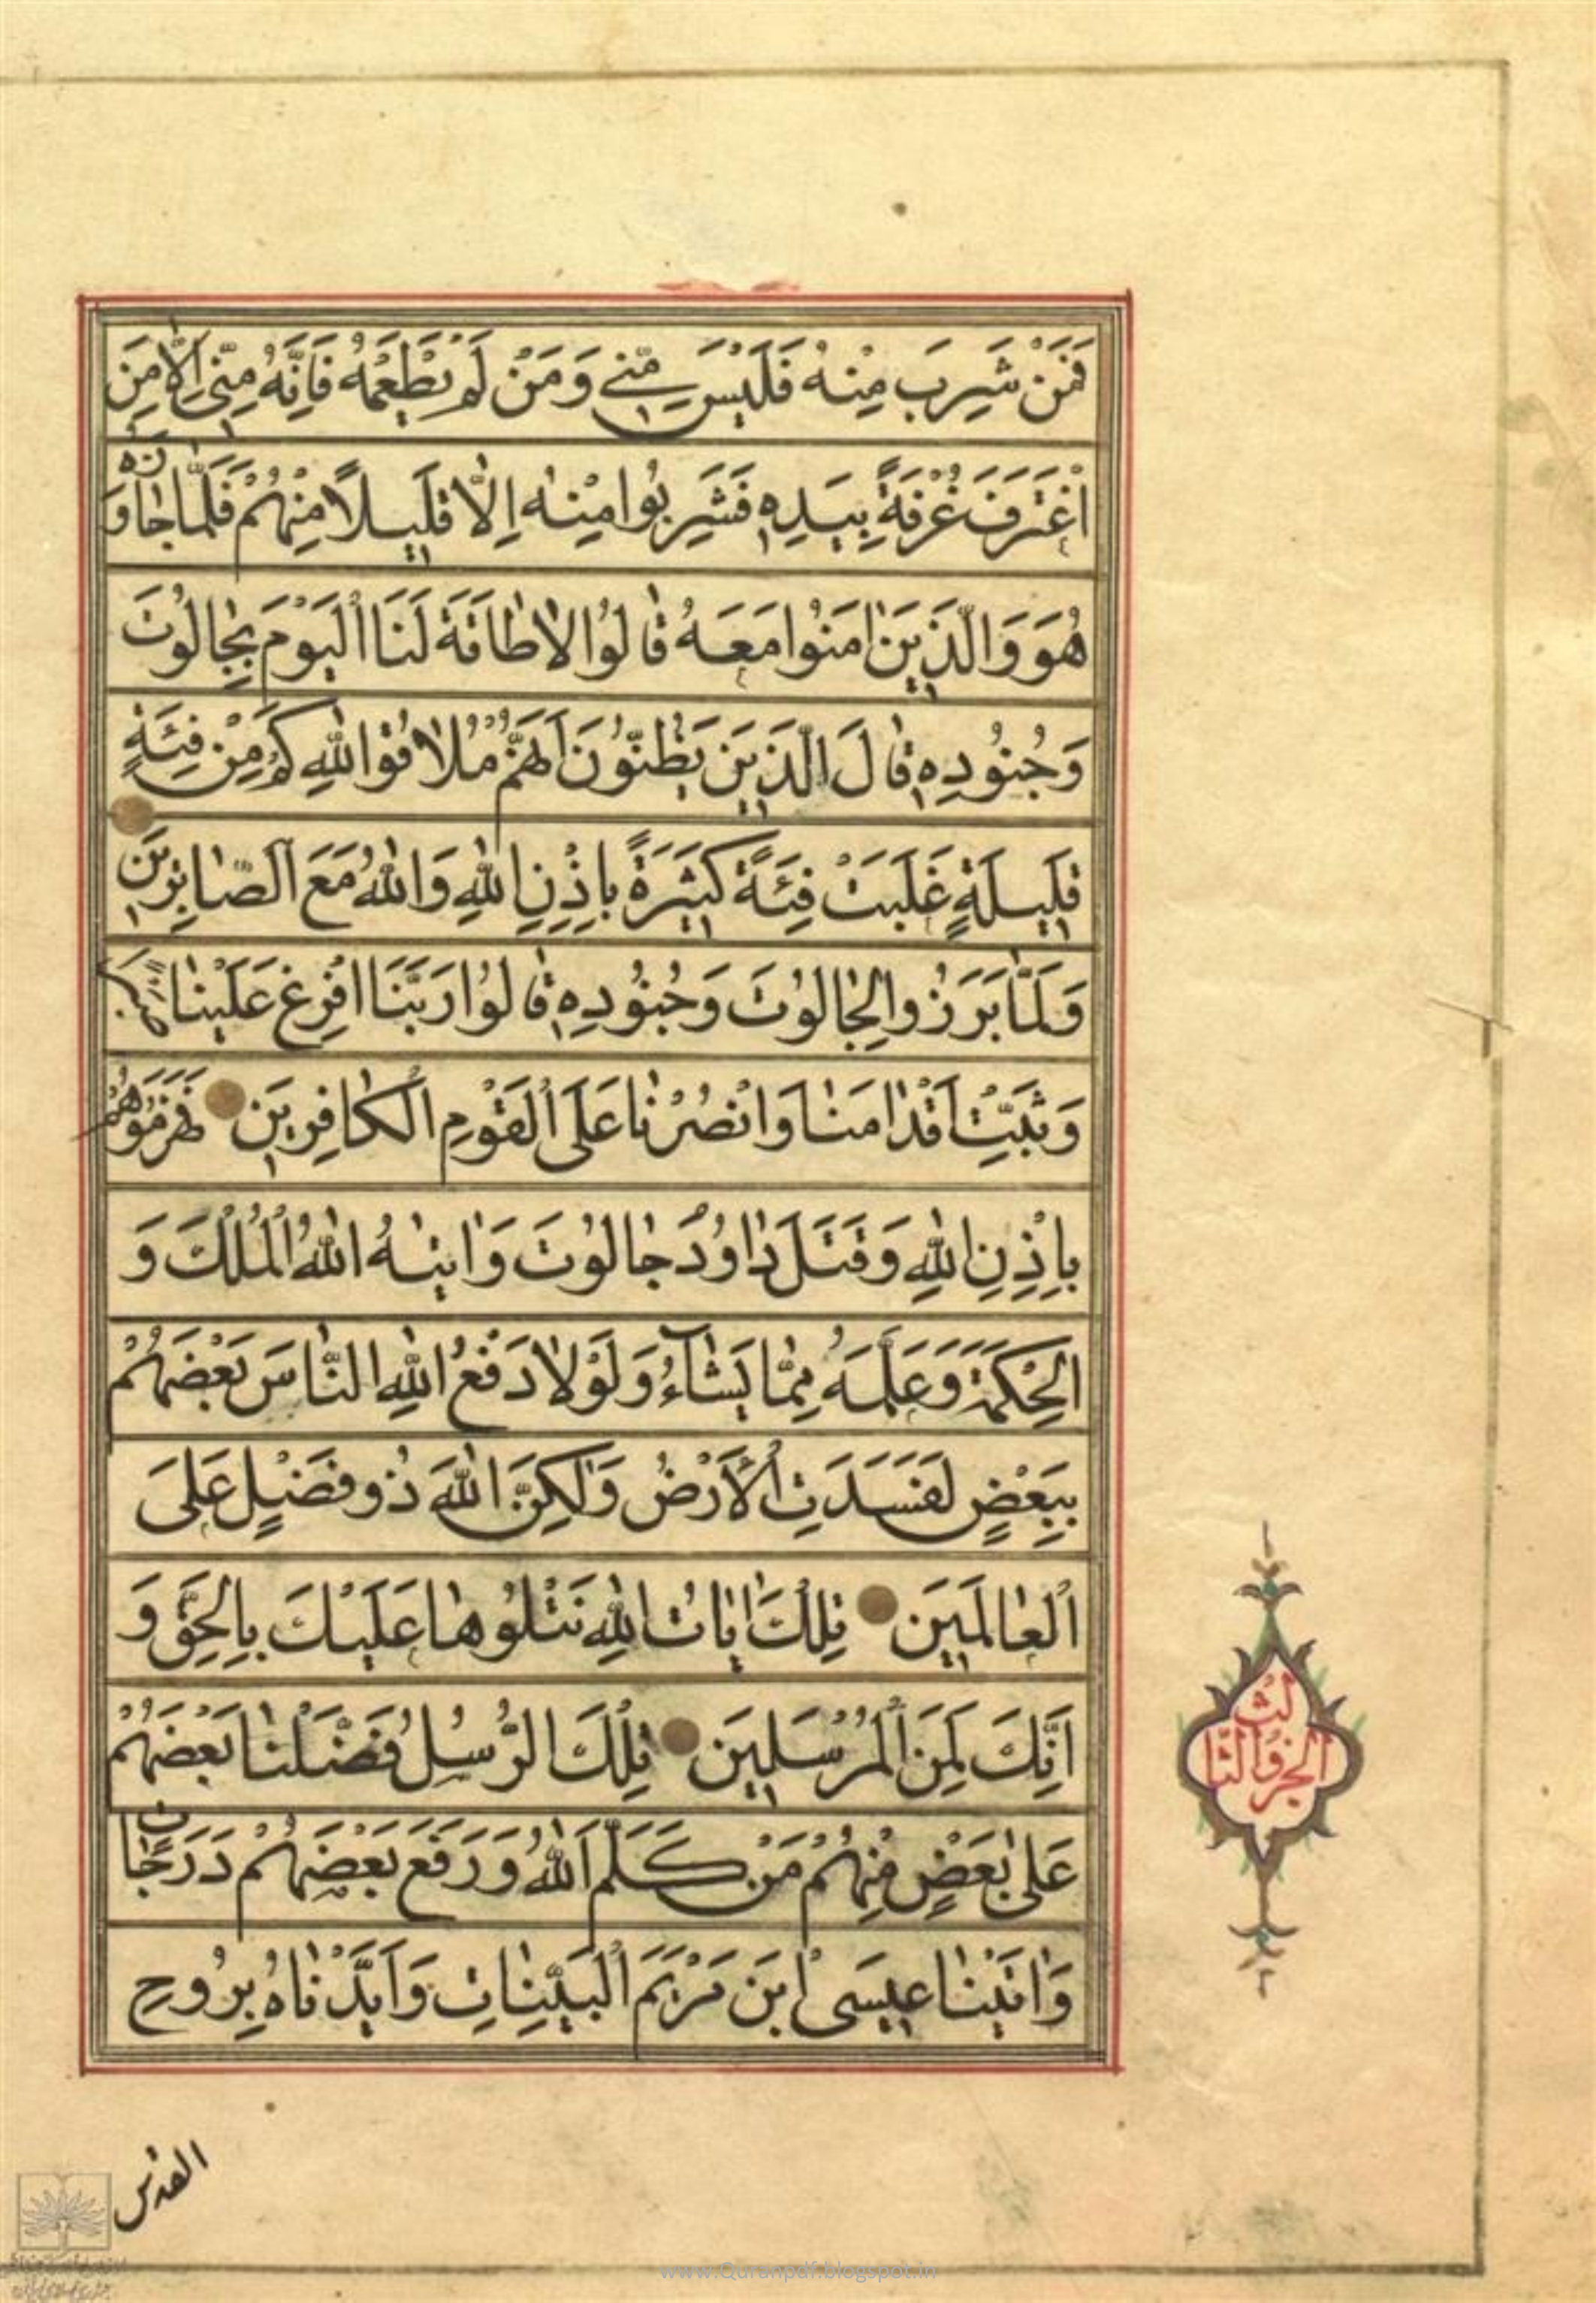 فَمَنْ شَرِبَ مِنْهُ فَلَيْسَ مِنّٖي وَمَنْ لَمْ يَطْعَمْهُ فَاِنَّهُ مِنّٖي اِلَّا مَنِ
اغْتَرَفَ غُرْفَةً بِيَدِهٖ فَشَرِبُوا مِنْهُ اِلَّا قَلٖيلًا مِنْهُمْ فَلَمَّا جَاوَزَهُ
هُوَ وَالَّذٖينَ اٰمَنُوا مَعَهُ قٰالُوا لٰا طٰاقَةَ لَنَا الْيَوْمَ بِجٰالُوتَ
وَجُنُودِهٖ قٰالَ الَّذٖينَ يَظُنُّونَ اَنَّهُمْ مُلٰاقُوا اللّٰهِ كَمْ مِنْ فِئَةٍ
قَلٖيلَةٍ غَلَبَتْ فِئَةً كَثٖيرَةً بِاِذْنِ اللّٰهِ وَاللّٰهُ مَعَ الصّٰابِرٖينَ
وَلَمَّا بَرَزُوا لِجٰالُوتَ وَجُنُودِهٖ قٰالُوا رَبَّنَا افْرِغْ عَلَيْنٰا صَبْرًا
وَثَبِّتْ اَقْدٰامَنٰا وَانْصُرْنٰا عَلَى الْقَوْمِ الْكٰافِرٖينَ فَهَزَمُوهُمْ
بِاِذْنِ اللّٰهِ وَقَتَلَ دٰاوُدُ جٰالُوتَ وَاٰتٰيهُ اللّٰهُ الْمُلْكَ وَ
الْحِكْمَةَ وَعَلَّمَهُ مِمّٰا يَشٰٓاءُ وَلَوْلٰا دَفْعُ اللّٰهِ النّٰاسَ بَعْضَهُمْ
بِبَعْضٍ لَفَسَدَتِ الْاَرْضُ وَلٰكِنَّ اللّٰهَ ذُو فَضْلٍ عَلَى
الْعٰالَمٖينَ تِلْكَ اٰيٰاتُ اللّٰهِ نَتْلُوهٰا عَلَيْكَ بِالْحَقِّ وَ
اِنَّكَ لَمِنَ الْمُرْسَلٖينَ تِلْكَ الرُّسُلُ فَضَّلْنٰا بَعْضَهُمْ
عَلٰى بَعْضٍ مِنْهُمْ مَنْ كَلَّمَ اللّٰهُ وَرَفَعَ بَعْضَهُمْ دَرَجٰاتٍ
وَاٰتَيْنٰا عٖيسَى ابْنَ مَرْيَمَ الْبَيِّنٰاتِ وَاَيَّدْنٰاهُ بِرُوحِ
القدس
الجزو الثالث
www.Quranpdf.blogspot.in